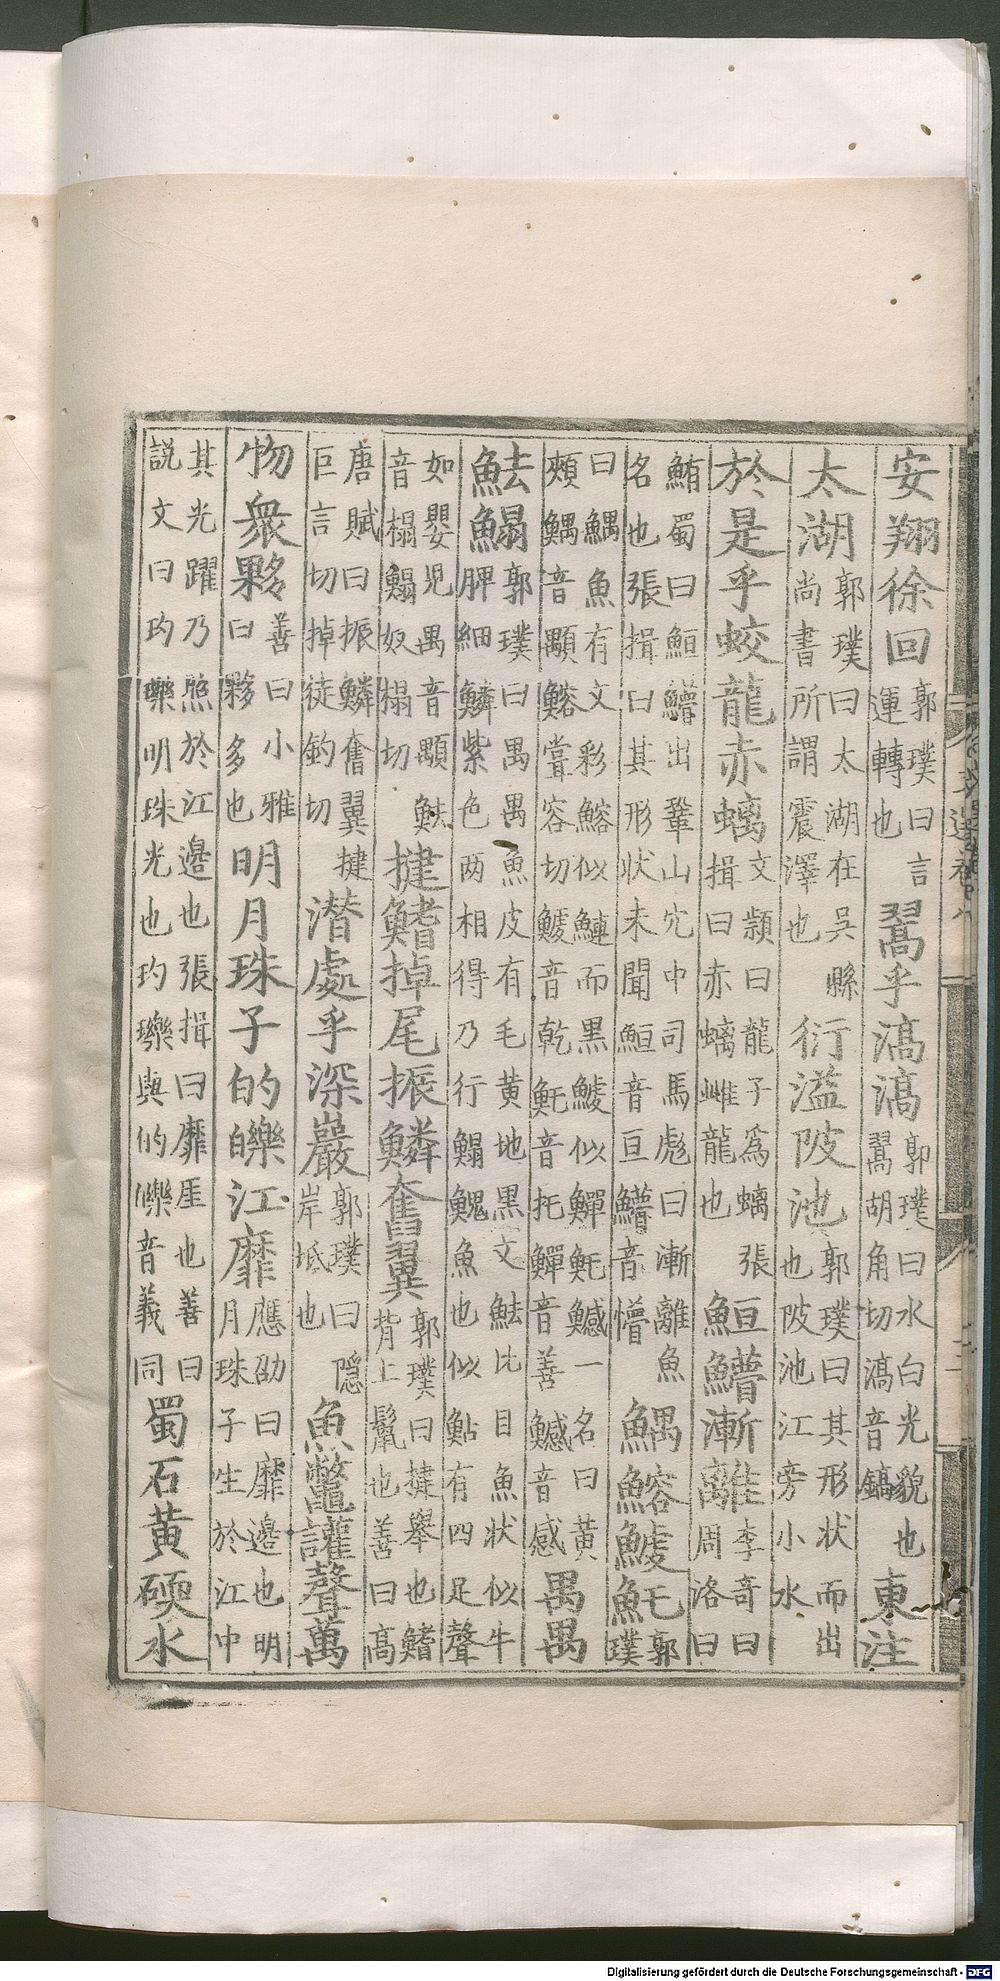 安翔徐回郭璞曰言運轉也翯乎滈滈郭璞曰水白光貌也翯胡角切滈音鎬東注
太湖郭璞曰太湖在吳縣尚書所謂震澤也衍溢陂池郭璞曰其形狀而出也陂池江旁小水
於是乎蛟龍赤螭文頴曰龍子為螭張揖曰赤螭雌龍也䱎䲛漸離李奇曰周洛曰
鮪蜀曰䱎䲛出鞏山穴中司馬彪曰漸離魚名也張揖曰其形狀未聞䱎音亘䲛音懵鰅鰫鰬魠郭璞
曰鰅魚有文彩鰫似鰱而黑鰬似鱓魠鱤一名曰黃頰鰅音顒鰫嘗容切鰬音乾魠音托鱓音善鱤音感禺禺
魼鰨郭璞曰禺禺魚皮有毛黃地黑文魼比目魚狀似牛脾細鱗紫色兩相得乃行鰨鯢魚也似鮎有四足聲
如嬰兒禺音顒魼音榻鰨奴榻切揵鰭掉尾振鱗奮翼郭璞曰揵舉也鰭背上鬣也善曰高
唐賦曰振鱗奮翼揵巨言切掉徒釣切潛處乎深巖郭璞曰隱岸坻也魚鱉讙聲萬
物衆夥善曰小雅曰夥多也明月珠子的皪江靡應劭曰靡邊也明月珠子生於江中
其光躍乃照於江邊也張揖曰靡厓也善曰説文曰玓瓅明珠光也玓瓅與的皪音義同蜀石黃碝水
Digitalisierung gefördert durch die Deutsche Forschungsgemeinschaft - DFG